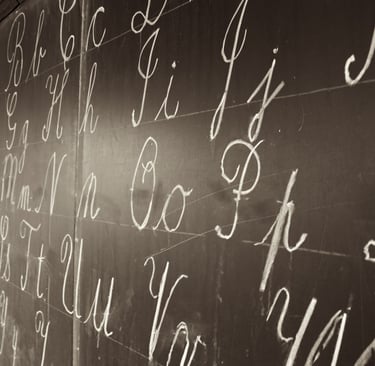 B b C c D
G g H h I i J j
M m N n O o P p
S s T t U u V v
y